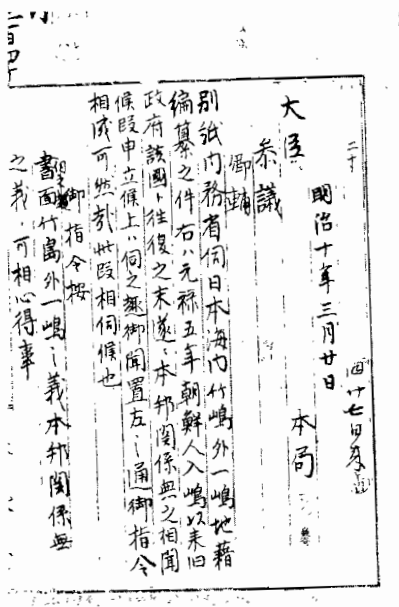 明治十年三月廿日
大臣
本局
参議
卿輔
別紙内務省伺日本海内竹嶋外一嶋地籍
編纂之件右ハ元禄五年朝鮮人入嶋以来旧
政府該国ト往復之末遂ニ本邦関係無之相聞
候段申立候上ハ伺之趣御聞置左之通御指令
相成可然哉此段相伺候也
御指令按
書面竹島外一嶋之義本邦関係無
之義ト可相心得事